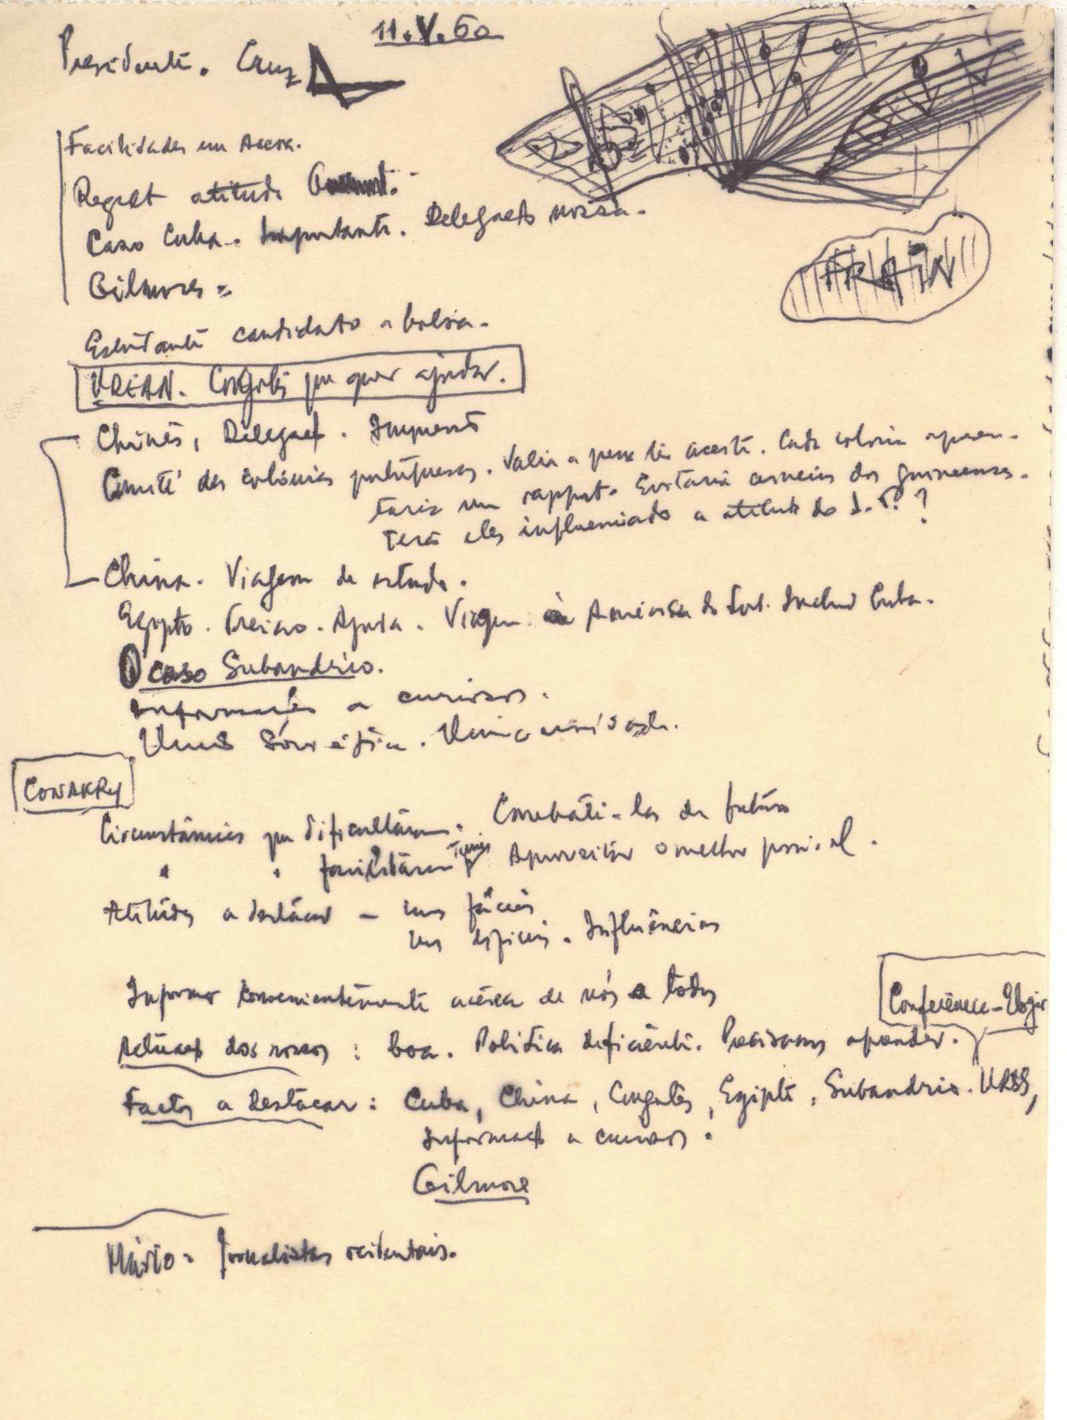 11.V.60
Presidente. Cruz
Facilidades em Accra.
atitude
Caso Cuba. Importante. Delegação nossa.
Gilmore =
Estudante candidato a bolsa.
UREAN. Congolês que quer ajudar.
Chinês, Delegaç.
Comité das colónias portuguesas. Valia a pena ter aceite. Cada colónia apresen-
taria um rapport. Gostaria dos guineenses.
Terá eles influenciado a atitude do S.T? ?
China. Viagem de estudo.
Egipto. Treino. Ajuda. Viagem à América do Sul. Inclui Cuba.
O caso Subandrio.
Informações a curiosos.
União Soviética.
CONAKRY
Circunstâncias que dificultaram. Combatê-las de futuro
" " facilitaram Aproveitar o melhor possível.
Atitudes a destacar - uns fáceis
uns difíceis. Influências
Informar convenientemente acerca de nós a todos
Conference - Elogio
Actuação dos nossos: boa. Política deficiente. Precisamos aprender.
Factos a destacar: Cuba, China, Congolês, Egipto, Subandrio. URSS,
Informação a curiosos.
Gilmore
Mário = Jornalistas ocidentais.